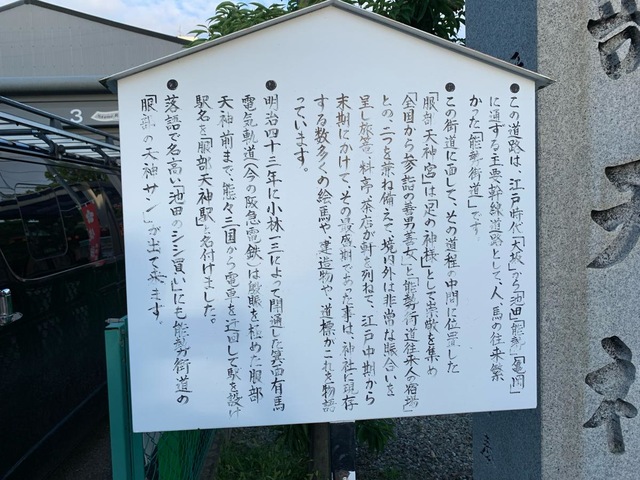 ●この道路は、江戸時代「大坂」から「池田」「能勢」「亀岡」
に通ずる主要幹線道路として、人、馬の往来繁
かった「能勢街道」です。
●この街道に面して、その道程の中間に位置した
「服部天神宮」は「足の神様」として崇敬を集め
「全国から参詣の善男善女」と「能勢街道往来人の宿場」
との二つを兼ね備えて、境内外は非常な賑合いを
呈し旅篭、料亭、茶店が軒を列ねて、江戸中期から
末期にかけて、その最盛期であった事は、神社に現存
する数多くの絵馬や、建造物や、道標がこれを物語
っています。
●明治四十三年に小林一三によって開通した箕面有馬
電気軌道(今の阪急電鉄)は殷賑を極めた服部
天神前まで、態々三国から電車を迂回して駅を設け
駅名を「服部天神駅」と名付けました。
●落語で名高い「池田のシシ買い」にも能勢街道の
「服部の天神サン」が出て来ます。
3